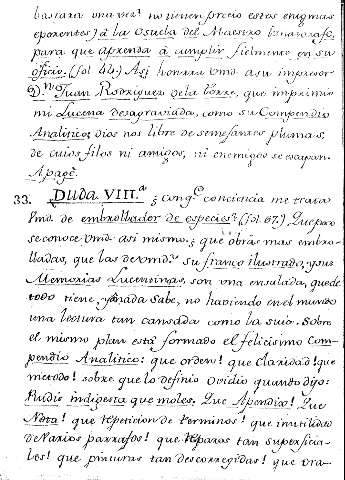 bastara una vez! no tienen precio estos enigmas
eporentos) á la Escuela del Maestro
para que aprenda á cumplir fielmente en su
oficio. (fol. 44.) Asi honrara Vmd. a su impresor
D.ⁿ Juan Rodriguez de la Torre, que imprimio
mi Lucena desagraviada, como su Compendio
Analitico; dios nos libre de semejantes plumas,
de cuios filos ni amigos, ni enemigos se escapan.
Apage.
33. Duda VIII.ª ¿ con q.e conciencia me trata
Vmd. de embrollador de especies? (fol. 67.) Que poco
se conoce Vmd. asi mismo; ¿ que obras mas embro-
lladas, que las de Vmd.? su franco ilustrado, y sus
Memorias Lucentinas, son una ensalada, que de
todo tiene, y á nada sabe, no haviendo en el mundo
una lectura tan cansada como la suia. Sobre
el mismo plan está formado el felicisimo Com-
pendio Analitico: que orden! que claridad! que
metodo! sobre que lo definio Ovidio quando dijo:
Rudis indigesta que moles. Que Apendix! Que
Nota! que repeticion de terminos! que inutilidad
de varios parrafos! que reparos tan superficia-
les! que pinturas tan descorregidas! que ora-